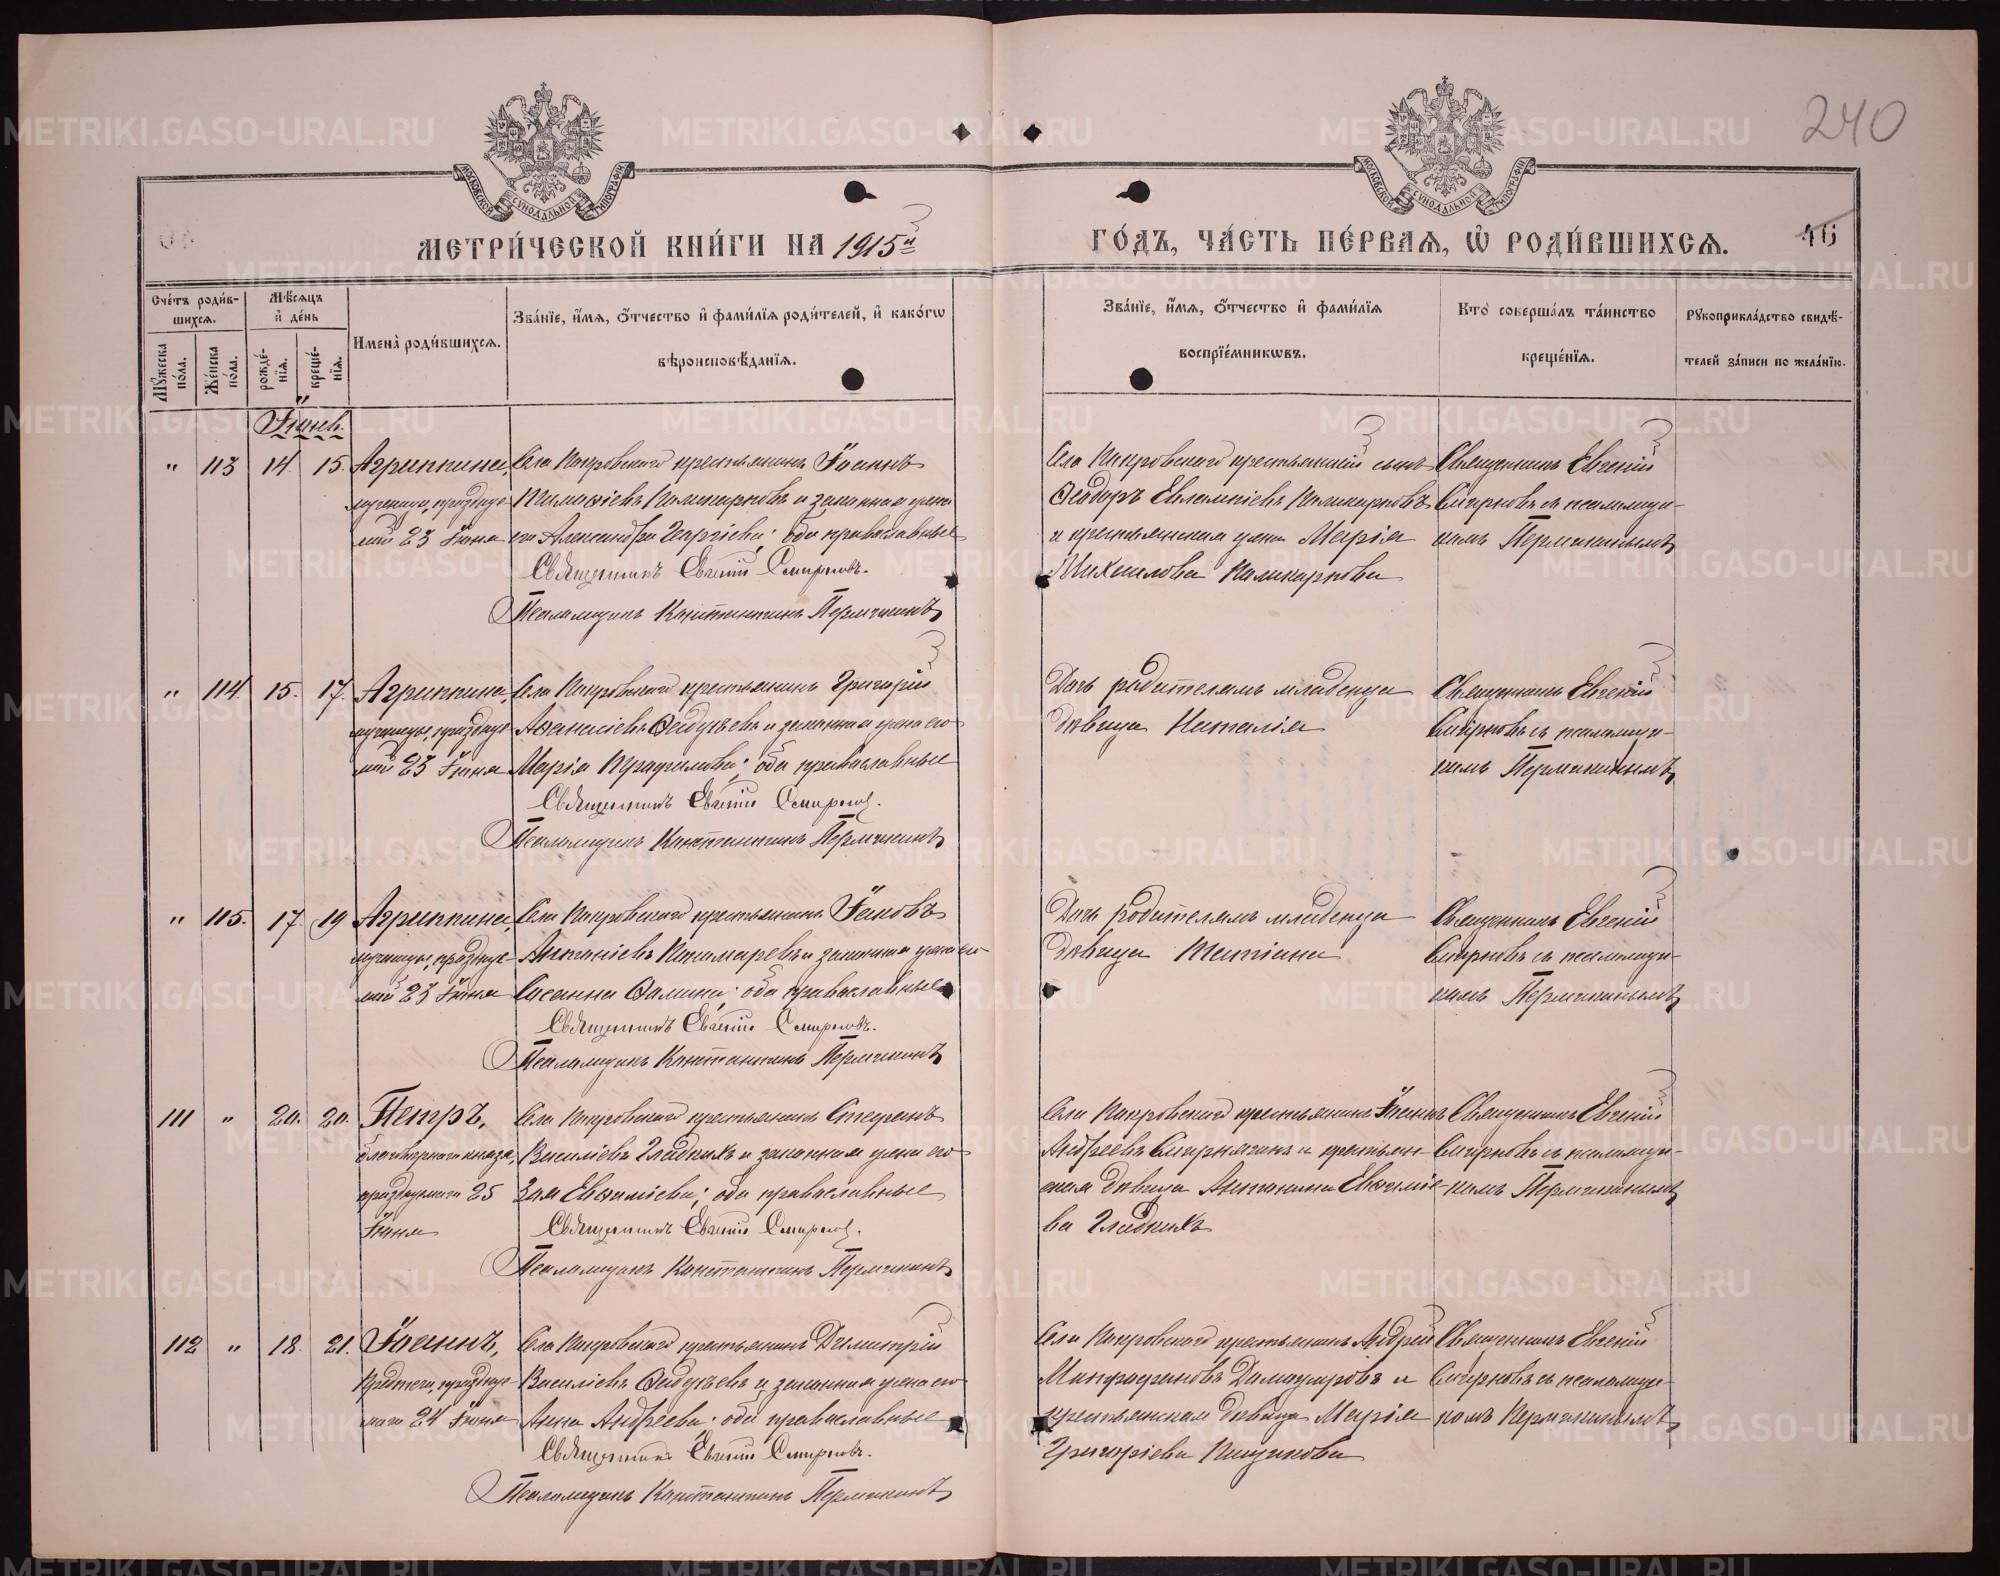 240
МОСКОВСКОЙ СѴНОДАЛЬНОЙ ТИПОГРАФІИ
МОСКОВСКОЙ СѴНОДАЛЬНОЙ ТИПОГРАФІИ
МЕТРИ́ЧЕСКОЙ КНИ́ГИ НА 1915й
ГО́ДЪ, ЧА́СТЬ ПЕ́РВАЯ, Ѡ РОДИ́ВШИХСЯ.
46
Сче́тъ роди́в-
шихся.
Мѣ́сяцъ
и де́нь
Мꙋ́жеска по́ла.
Же́нска по́ла.
рожде́-нія.
креще́-нія.
Имена̀ роди́вшихся.
Зва́ніе, и́мя, о́тчество и фами́лія роди́телей, и како́гѡ
вѣроисповѣ́данія.
Зва́ніе, и́мя, о́тчество и фами́лія
воспріе́мникѡвъ.
Кто̀ соверша́лъ та́инство
креще́нія.
Рꙋкоприкла́дство свидѣ́-
телей за́писи по жела́нію.
Іюнь.
" 113 14. 15. Агриппина,
мученицы, празднуе-
мой 23 Іюня
Села Покровскаго крестьянинъ Іоаннъ
Тимоѳіевъ Поликарповъ и законная жена
его Александра Георгіева; оба православные
Священникъ Евгеній Смирновъ.
Псаломщикъ Константинъ Пермикинъ
Села Покровскаго крестьянскій сынъ
Ѳеодоръ Евлампіевъ Поликарповъ
и крестьянская жена Марія
Михаилова Поликарпова
Священникъ Евгеній
Смирновъ съ псаломщи-
комъ Пермикинымъ
" 114. 15. 17. Агриппина,
мученицы, празднуе-
мой 23 Іюня
Села Покровскаго крестьянинъ Григорій
Аѳанасіевъ Ѳедуѣевъ и законная жена его
Марія Трофимова; оба православные
Священникъ Евгеній Смирновъ.
Псаломщикъ Константинъ Пермикинъ
Дочь родителямъ младенца
дѣвица Наталія
Священникъ Евгеній
Смирновъ съ псаломщи-
комъ Пермикинымъ
" 115. 17. 19 Агриппина,
мученицы, празднуе-
мой 23 Іюня
Села Покровскаго крестьянинъ Іаковъ
Антоніевъ Пономаревъ и законная жена его
Сусанна Ѳомина; оба православные
Священникъ Евгеній Смирновъ.
Псаломщикъ Константинъ Пермикинъ
Дочь родителямъ младенца
дѣвица Татіана
Священникъ Евгеній
Смирновъ съ псаломщи-
комъ Пермикинымъ
111 " 20. 20. Петръ,
благовѣрнаго князя,
празднуемаго 25
Іюня
Села Покровскаго крестьянинъ Стефанъ
Василіевъ Гладкихъ и законная жена его
Зоя Евѳиміева; оба православные
Священникъ Евгеній Смирновъ.
Псаломщикъ Константинъ Пермикинъ
Села Покровскаго крестьянинъ Іоаннъ
Андреевъ и крестьян-
ская дѣвица Антонина Евѳиміе-
ва Гладкихъ
Священникъ Евгеній
Смирновъ съ псаломщи-
комъ Пермикинымъ
112 " 18. 21. Іоаннъ,
Предтечи, празднуе-
маго 24 Іюня
Села Покровскаго крестьянинъ Димитрій
Василіевъ Ѳедуѣевъ и законная жена его
Анна Андреева; оба православные
Священникъ Евгеній Смирновъ.
Псаломщикъ Константинъ Пермикинъ
Села Покровскаго крестьянинъ Андрей
Митрофановъ и
крестьянская дѣвица Марія
Григоріева
Священникъ Евгеній
Смирновъ съ псаломщи-
комъ Пермикинымъ
METRIKI.GASO-URAL.RU